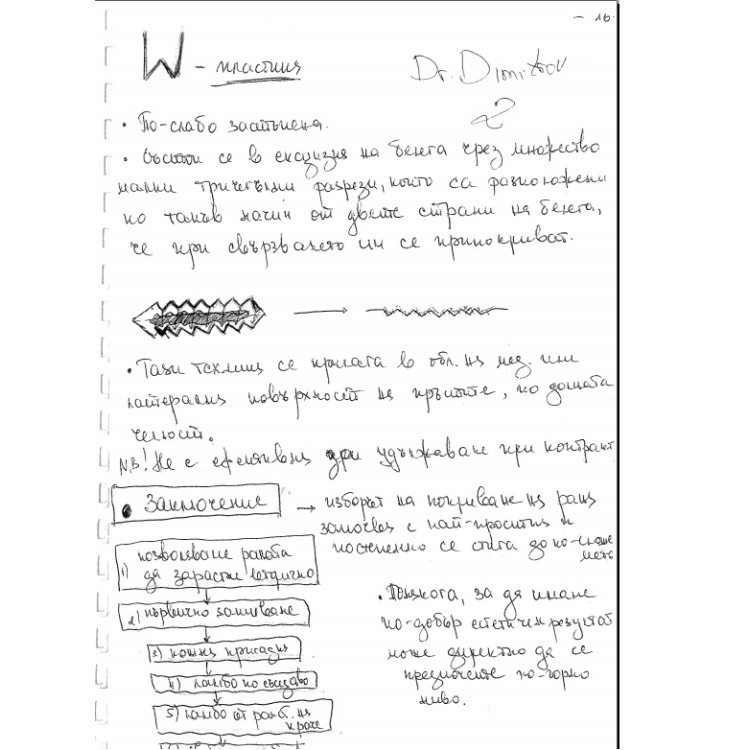 - 16 -
W - пластика
Dr. Dimitrov
2
• По-слабо застъпена.
• Състои се в ексцизия на белега чрез множество
малки триъгълни разрези, които са разположени
по такъв начин от двете страни на белега,
че при свързването им се припокриват.
• Тази техника се прилага в обл. на мед. или
латералната повърхност на пръстите, по долната
челюст.
N.B! Не е ефективна при удължаване при контракт
• Заключение → изборът на покриване на рана
започва с най-простия и
постепенно се стига до по-сложе
мето
1) позволяване раната
да зарасте вторично
2) първично зашиване
3) кожна присадка
4) ламбо по съседство
5) ламбо от разл. на
• Понякога, за да имаме
по-добър естетичен резултат
може директно да се
предпочете по-горно
ниво.